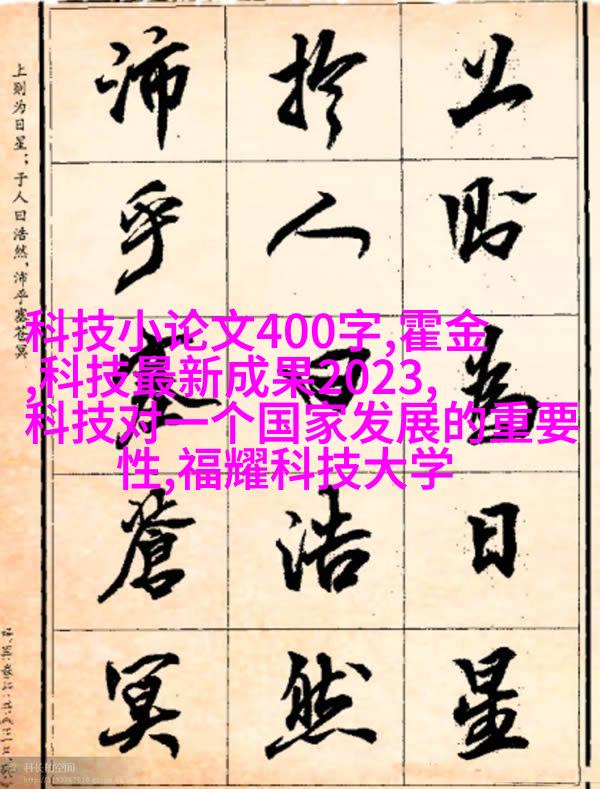 上则为日星
於人曰浩然
沛乎塞蒼冥
上则为日星；于人曰浩然，沛乎塞苍冥
科技小论文400字,霍金
,科技最新成果2023,
科技对一个国家发展的重要
性,福耀科技大学
科长的空间